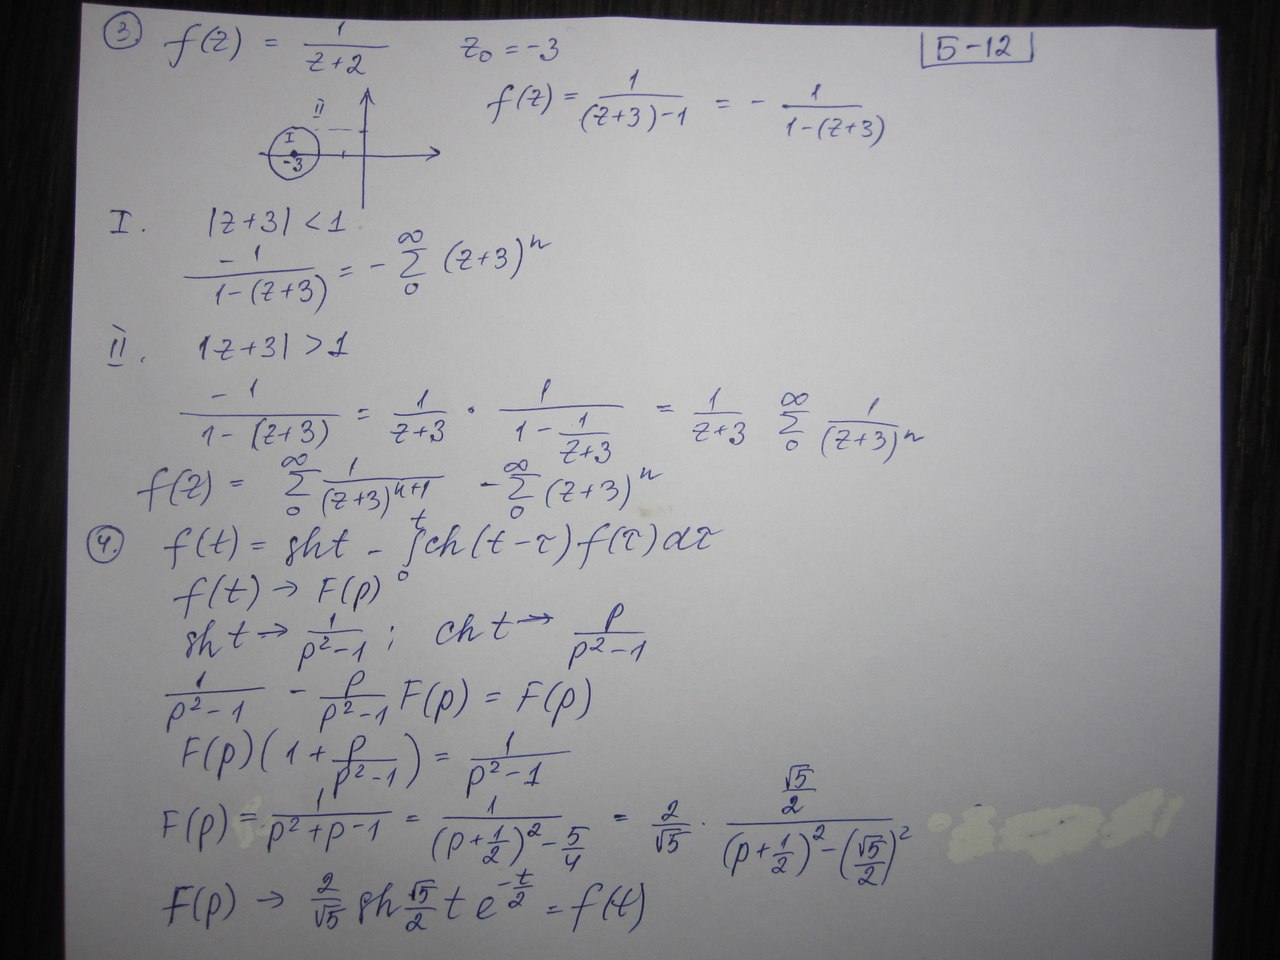 3. f(z) = 1/(z+2)   z₀ = -3   Б-12
f(z) = 1/((z+3)-1) = - 1/(1-(z+3))
II
I
-3
I. |z+3| < 1
-1/(1-(z+3)) = - ∑₀^∞ (z+3)ⁿ
II. |z+3| > 1
-1/(1-(z+3)) = 1/(z+3) · 1/(1 - 1/(z+3)) = 1/(z+3) ∑₀^∞ 1/(z+3)ⁿ
f(z) = ∑₀^∞ 1/(z+3)ⁿ⁺¹ - ∑₀^∞ (z+3)ⁿ
4. f(t) = sht - ∫₀ᵗ ch(t-τ)f(τ)dτ
f(t) → F(p)
sh t → 1/(p²-1) ; ch t → p/(p²-1)
1/(p²-1) - p/(p²-1) F(p) = F(p)
F(p)(1 + p/(p²-1)) = 1/(p²-1)
F(p) = 1/(p²+p-1) = 1/((p+1/2)² - 5/4) = 2/√5 · (√5/2)/((p+1/2)² - (√5/2)²)
F(p) → 2/√5 sh √5/2 t e^(-t/2) = f(t)